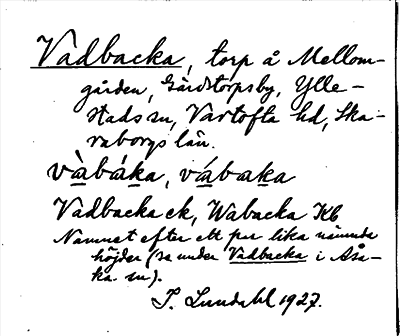 Vadbacka, torp å Mellom-
gården, Gärdstorpsby, Ylle-
stads sn, Vartofta hd, Ska-
raborgs län.
vàbáka, vábaka
Vadbacka ek, Wabacka Kb
Namnet efter ett par lika nämnda
höjder (se under Vadbacka i Åså-
ka sn).
I. Lundahl 1927.